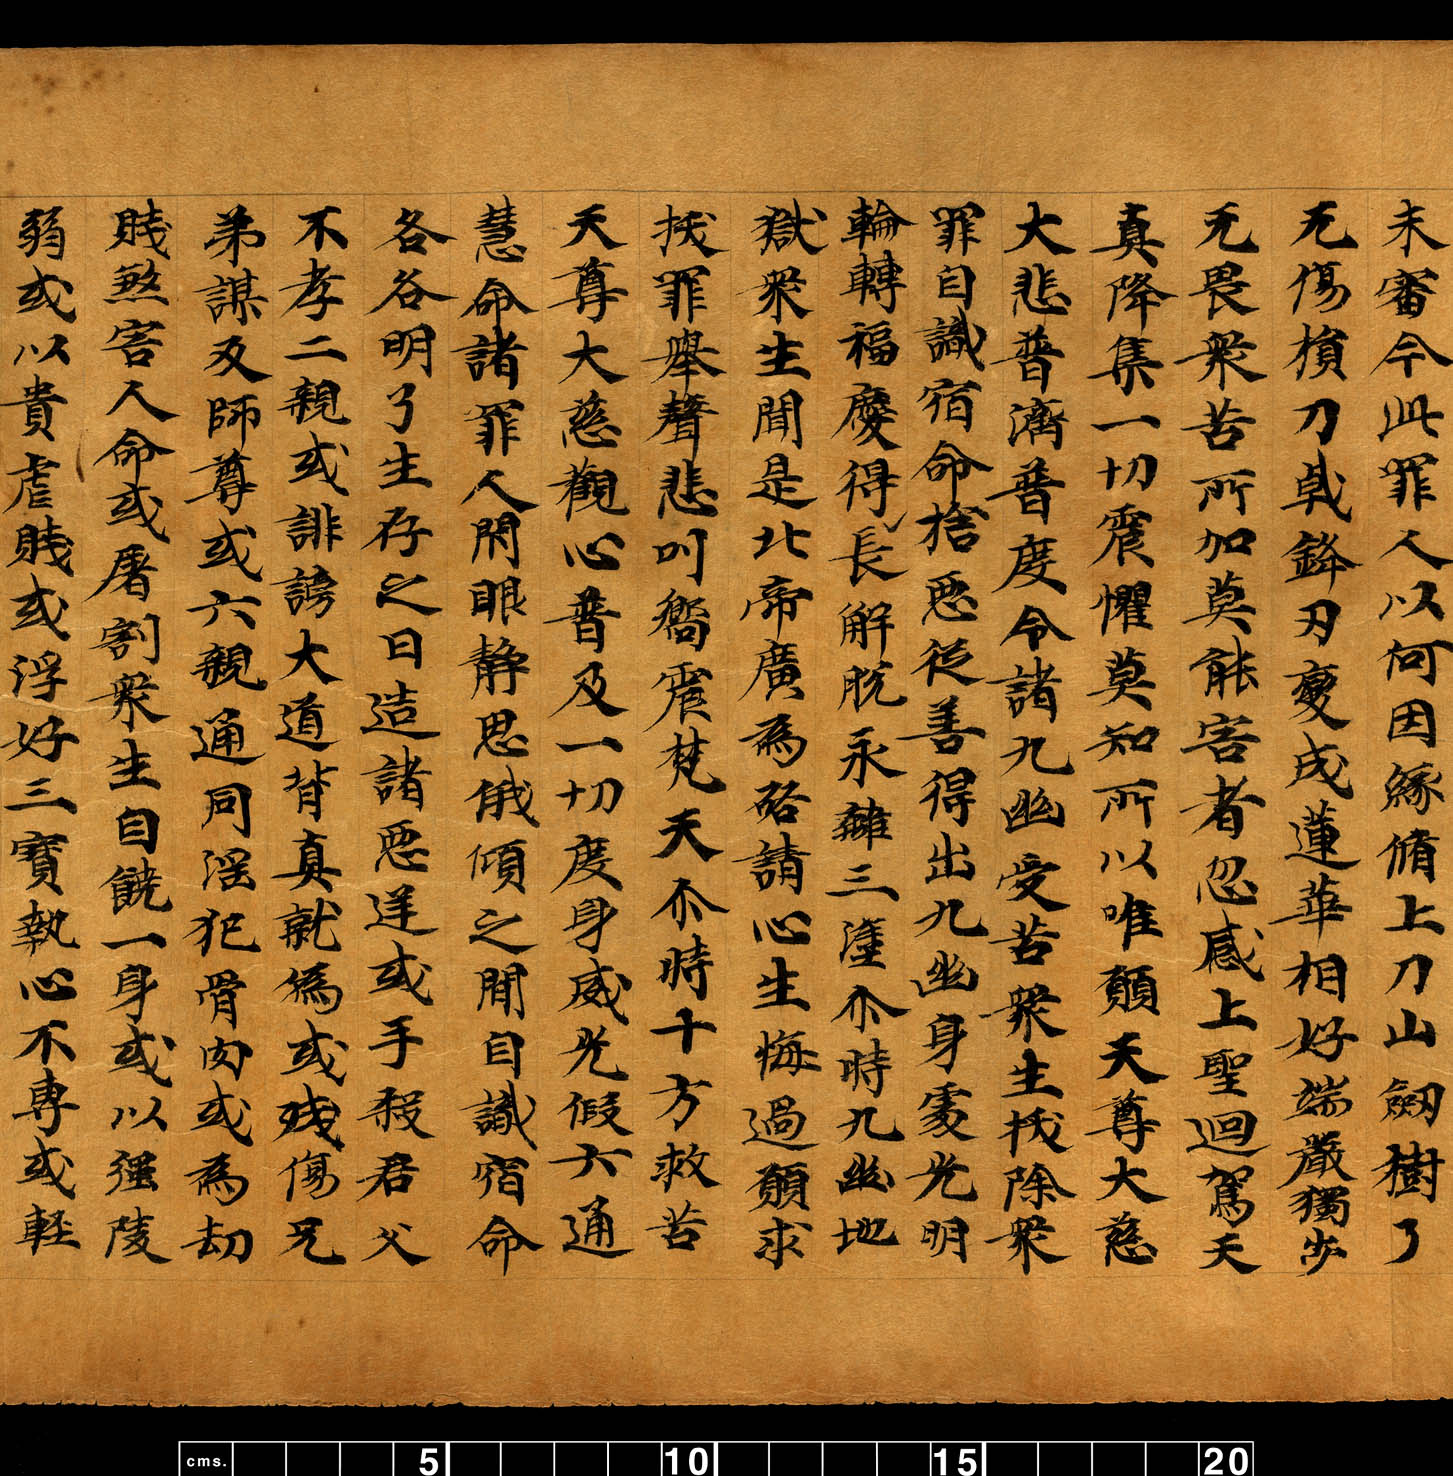 未審今此罪人以何因緣脩上刀山劔樹了
无傷損刀戟鋒刃變成蓮華相好端嚴獨步
无畏衆苦所加莫能害者忽感上聖迴駕天
真降集一切震懼莫知所以唯願天尊大慈
大悲普濟普度令諸九幽受苦衆生拔除衆
罪自識宿命捨惡從善得出九幽身處光明
輪轉福慶得長解脫永離三塗尒時九幽地
獄衆生聞是北帝廣為啓請心生悔過願求
拔罪舉聲悲叫嚮震梵天尒時十方救苦
天尊大慈觀心普及一切度身威光假六通
慧命諸罪人閇眼靜思俄傾之間自識宿命
各各明了生存之日造諸惡逆或手殺君父
不孝二親或誹謗大道背真就偽或殘傷兄
弟謀及師尊或六親通同淫犯骨肉或為劫
賊煞害人命或屠割衆生自饒一身或以強陵
弱或以貴虐賤或浮好三寶執心不專或軽
cms. 5 10 15 20